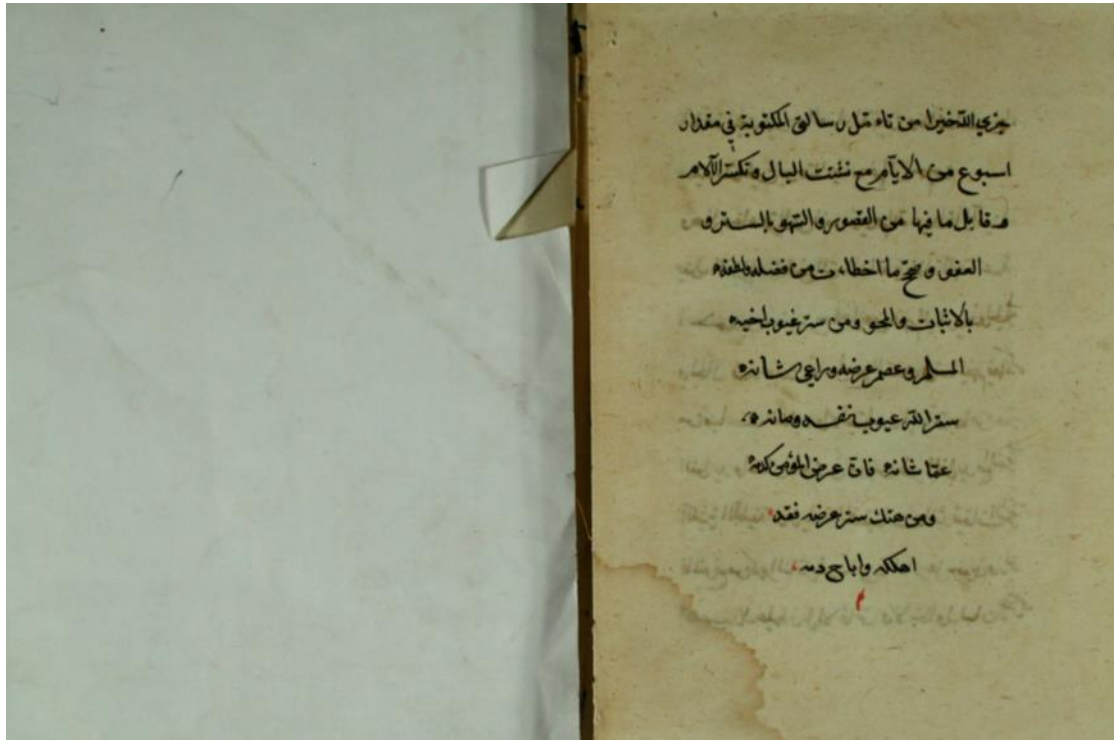 جزي الله خيرا من تاءمّل رسالتي المكتوبة في مقدار
اسبوع من الايّام مع تشتت البال وتكسّر الآلام
وقابل ما فيها من القصور والسّهو بالستر و
العفو وصحّح ما اخطاءت من فضله ولطفه
بالاثبات والمحو ومن ستر عيوب اخيه
المسلم وعصم عرضه وراعي شانه
ستر الله عيوب نفسه وصانه
عمّا شانه فانّ عرض المؤمن كدمه
ومن هتك ستر عرضه فقد
اهلكه واباح دمه
م